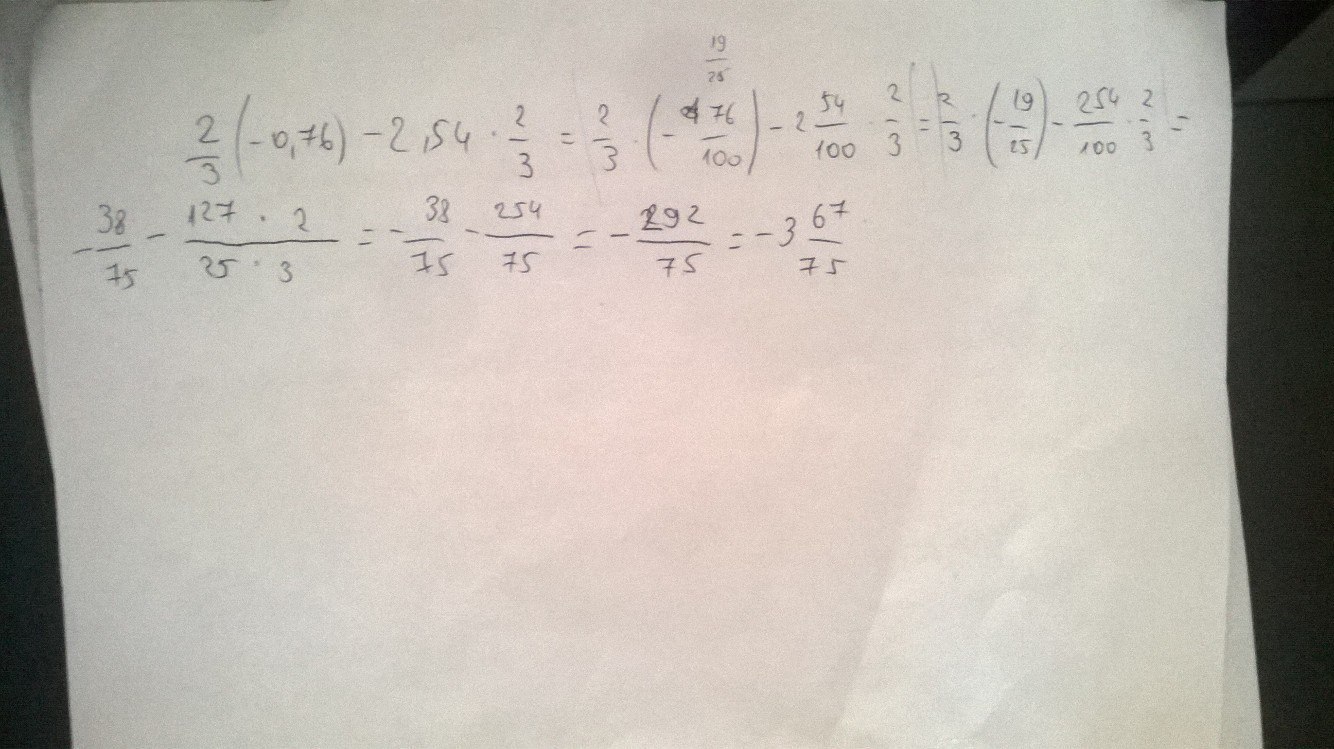 2/3 (-0,76) - 2,54 · 2/3 = 2/3 · (-76/100) - 2 54/100 · 2/3 = 2/3 · (-19/25) - 254/100 · 2/3 =
19/25
-38/75 - 127 · 2/25 · 3 = -38/75 - 254/75 = -292/75 = -3 67/75